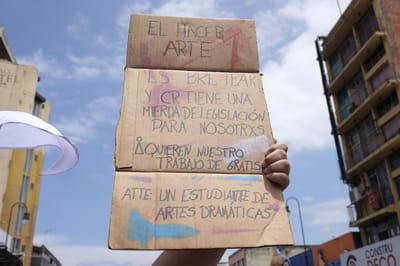 EL HACER
ARTE
ES BRETEAR
Y CR TIENE UNA
MIERDA DE LEGISLACIÓN
PARA NOSOTRXS
¡QUIEREN NUESTRO
TRABAJO DE GRATIS!
ATTE: UN ESTUDIANTE DE
ARTES DRAMÁTICAS
CONSTRU
DECO